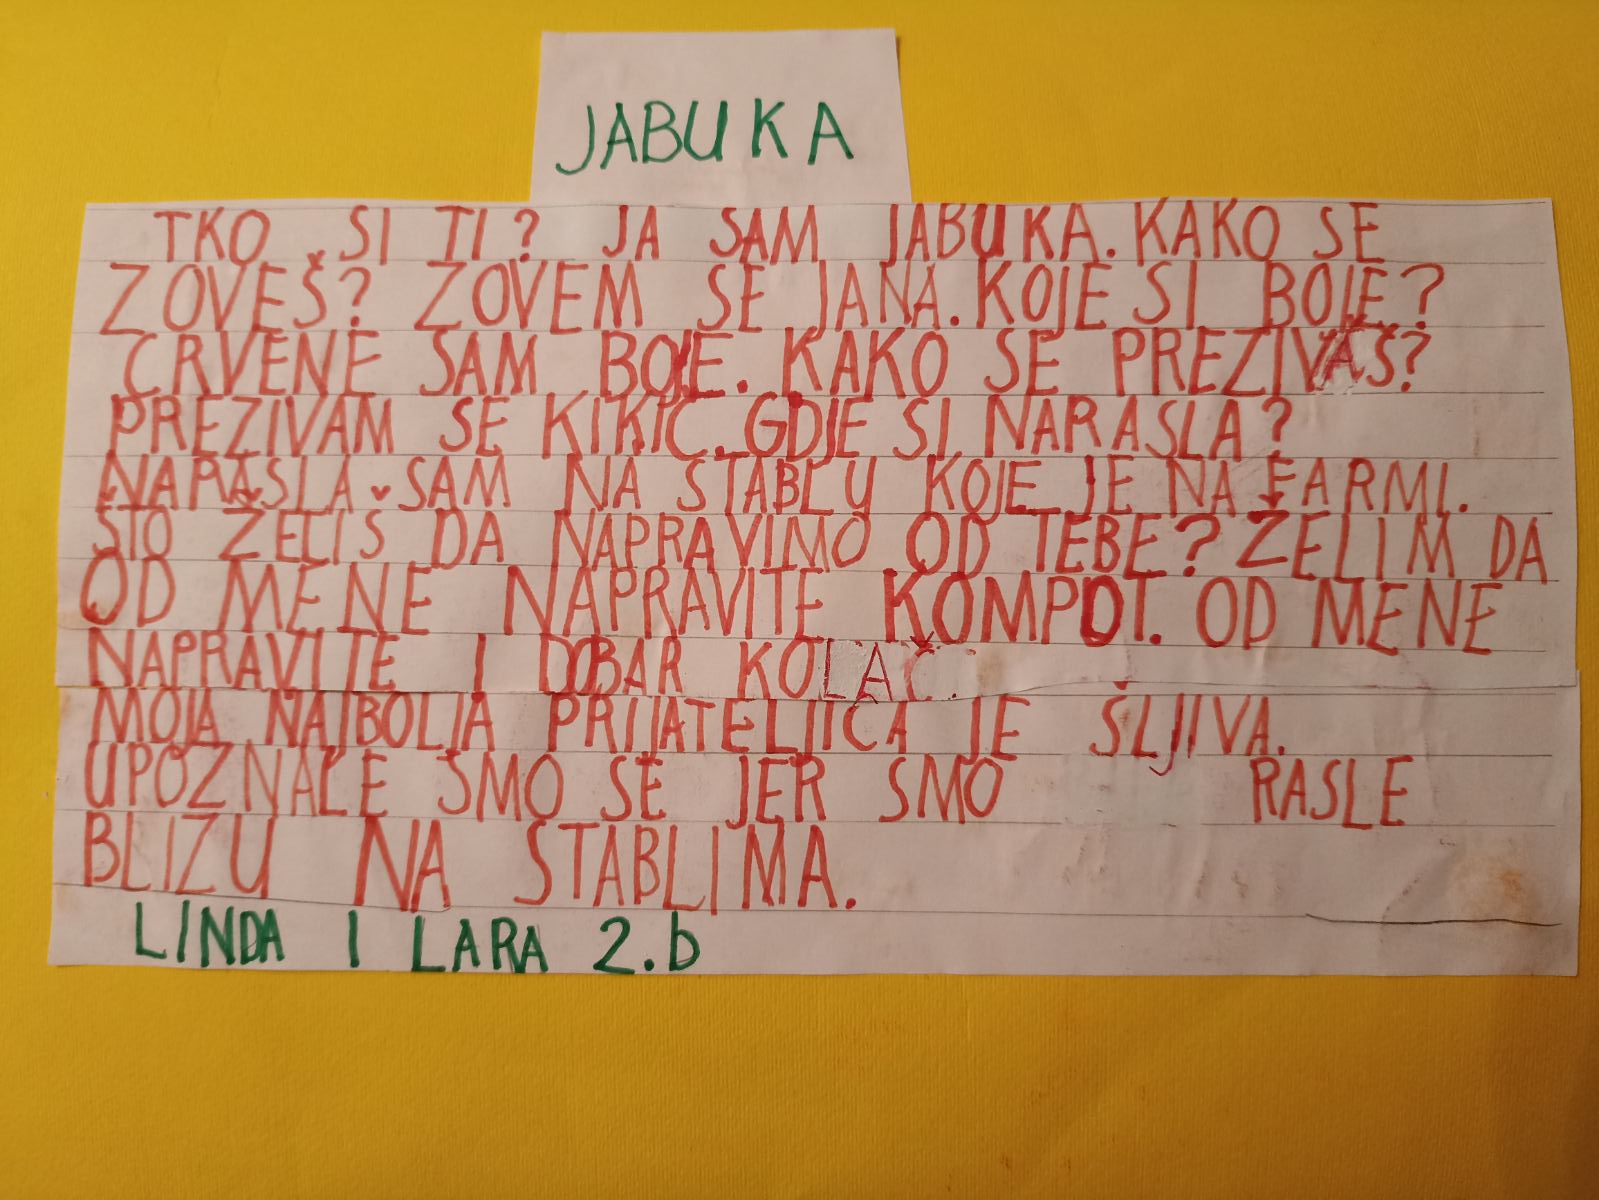 JABUKA
TKO SI TI? JA SAM JABUKA. KAKO SE
ZOVEŠ? ZOVEM SE JANA. KOJE SI BOJE?
CRVENE SAM BOJE. KAKO SE PREZIVAŠ?
PREZIVAM SE KIKIĆ. GDJE SI NARASLA?
NARASLA SAM NA STABLU KOJE JE NA FARMI.
ŠTO ŽELIŠ DA NAPRAVIMO OD TEBE? ŽELIM DA
OD MENE NAPRAVITE KOMPOT. OD MENE
NAPRAVITE I DOBAR KOLAČ.
MOJA NAJBOLJA PRIJATELJICA JE ŠLJIVA.
UPOZNALE SMO SE JER SMO RASLE
BLIZU NA STABLIMA.
LINDA I LARA 2.b